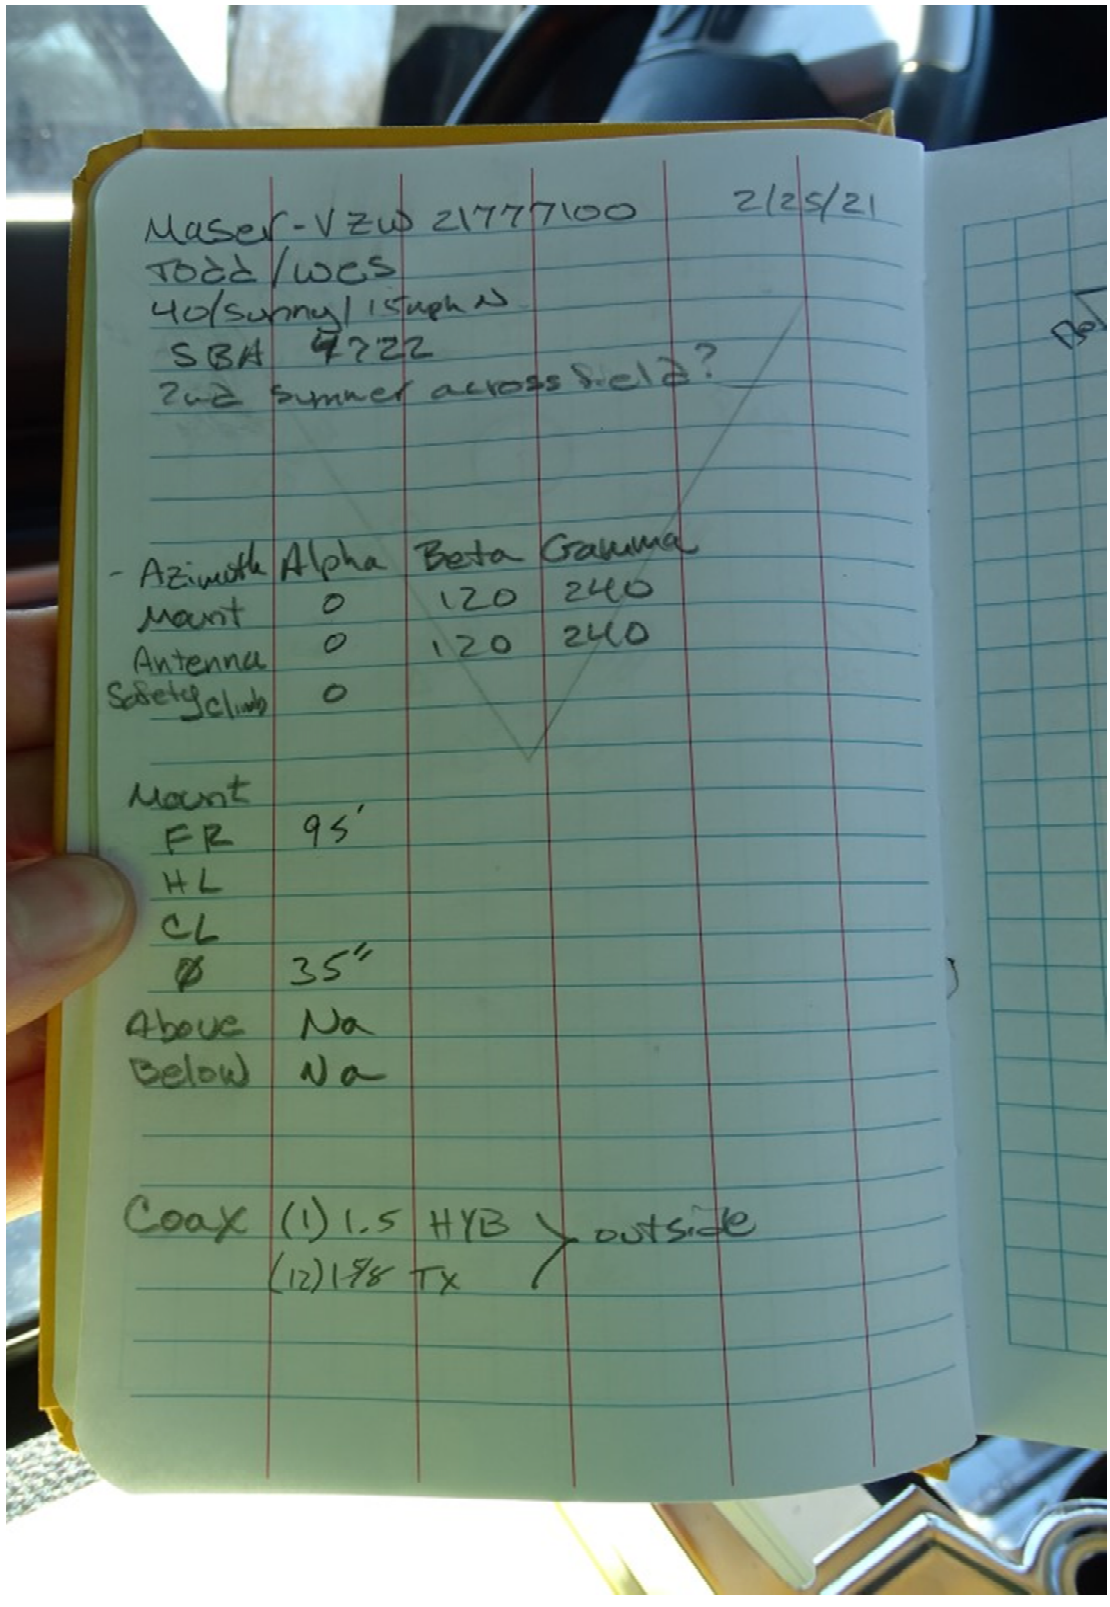 Maser-VZW 21777100 2/25/21
Todd/Wes
40/Sunny/15mph N
SBA 4722
2nd Sumner across field?
- Azimuth Alpha Beta Gamma
Mount 0 120 240
Antenna 0 120 240
Safety Climb 0
Mount
FR 95'
HL
CL
Ø 35"
Above Na
Below Na
Coax (1) 1.5 HYB > outside
(12) 1 5/8 TX